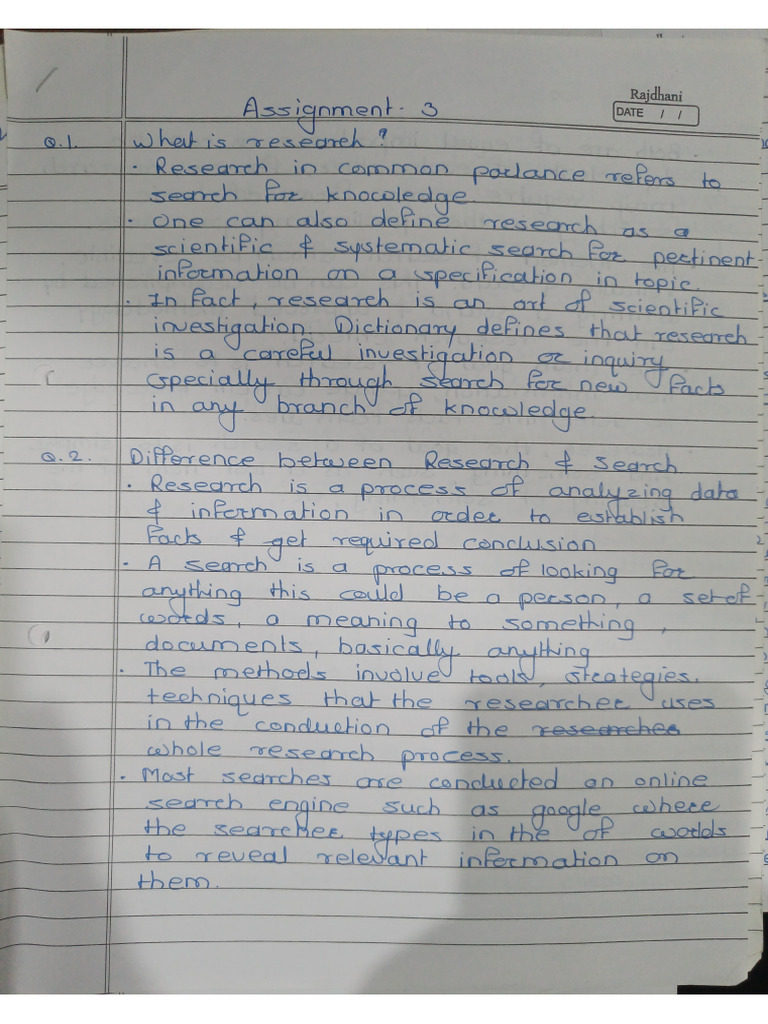 Rajdhani
DATE / /
Assignment - 3
Q.1. What is research?
• Research in common parlance refers to
search for knowledge
• One can also define research as a
scientific & systematic search for pertinent
information on a specification in topic.
• In fact, research is an art of scientific
investigation. Dictionary defines that research
is a careful investigation or inquiry
especially through search for new facts
in any branch of knowledge.
Q.2. Difference between Research & search
• Research is a process of analyzing data
& information in order to establish
facts & get required conclusion
• A search is a process of looking for
anything this could be a person, a set of
words, a meaning to something,
documents, basically anything
• The methods involve tools, strategies,
techniques that the researcher uses
in the conduction of the researches
whole research process.
• Most searches are conducted on online
search engine such as google where
the searcher types in the of words
to reveal relevant information on
them.